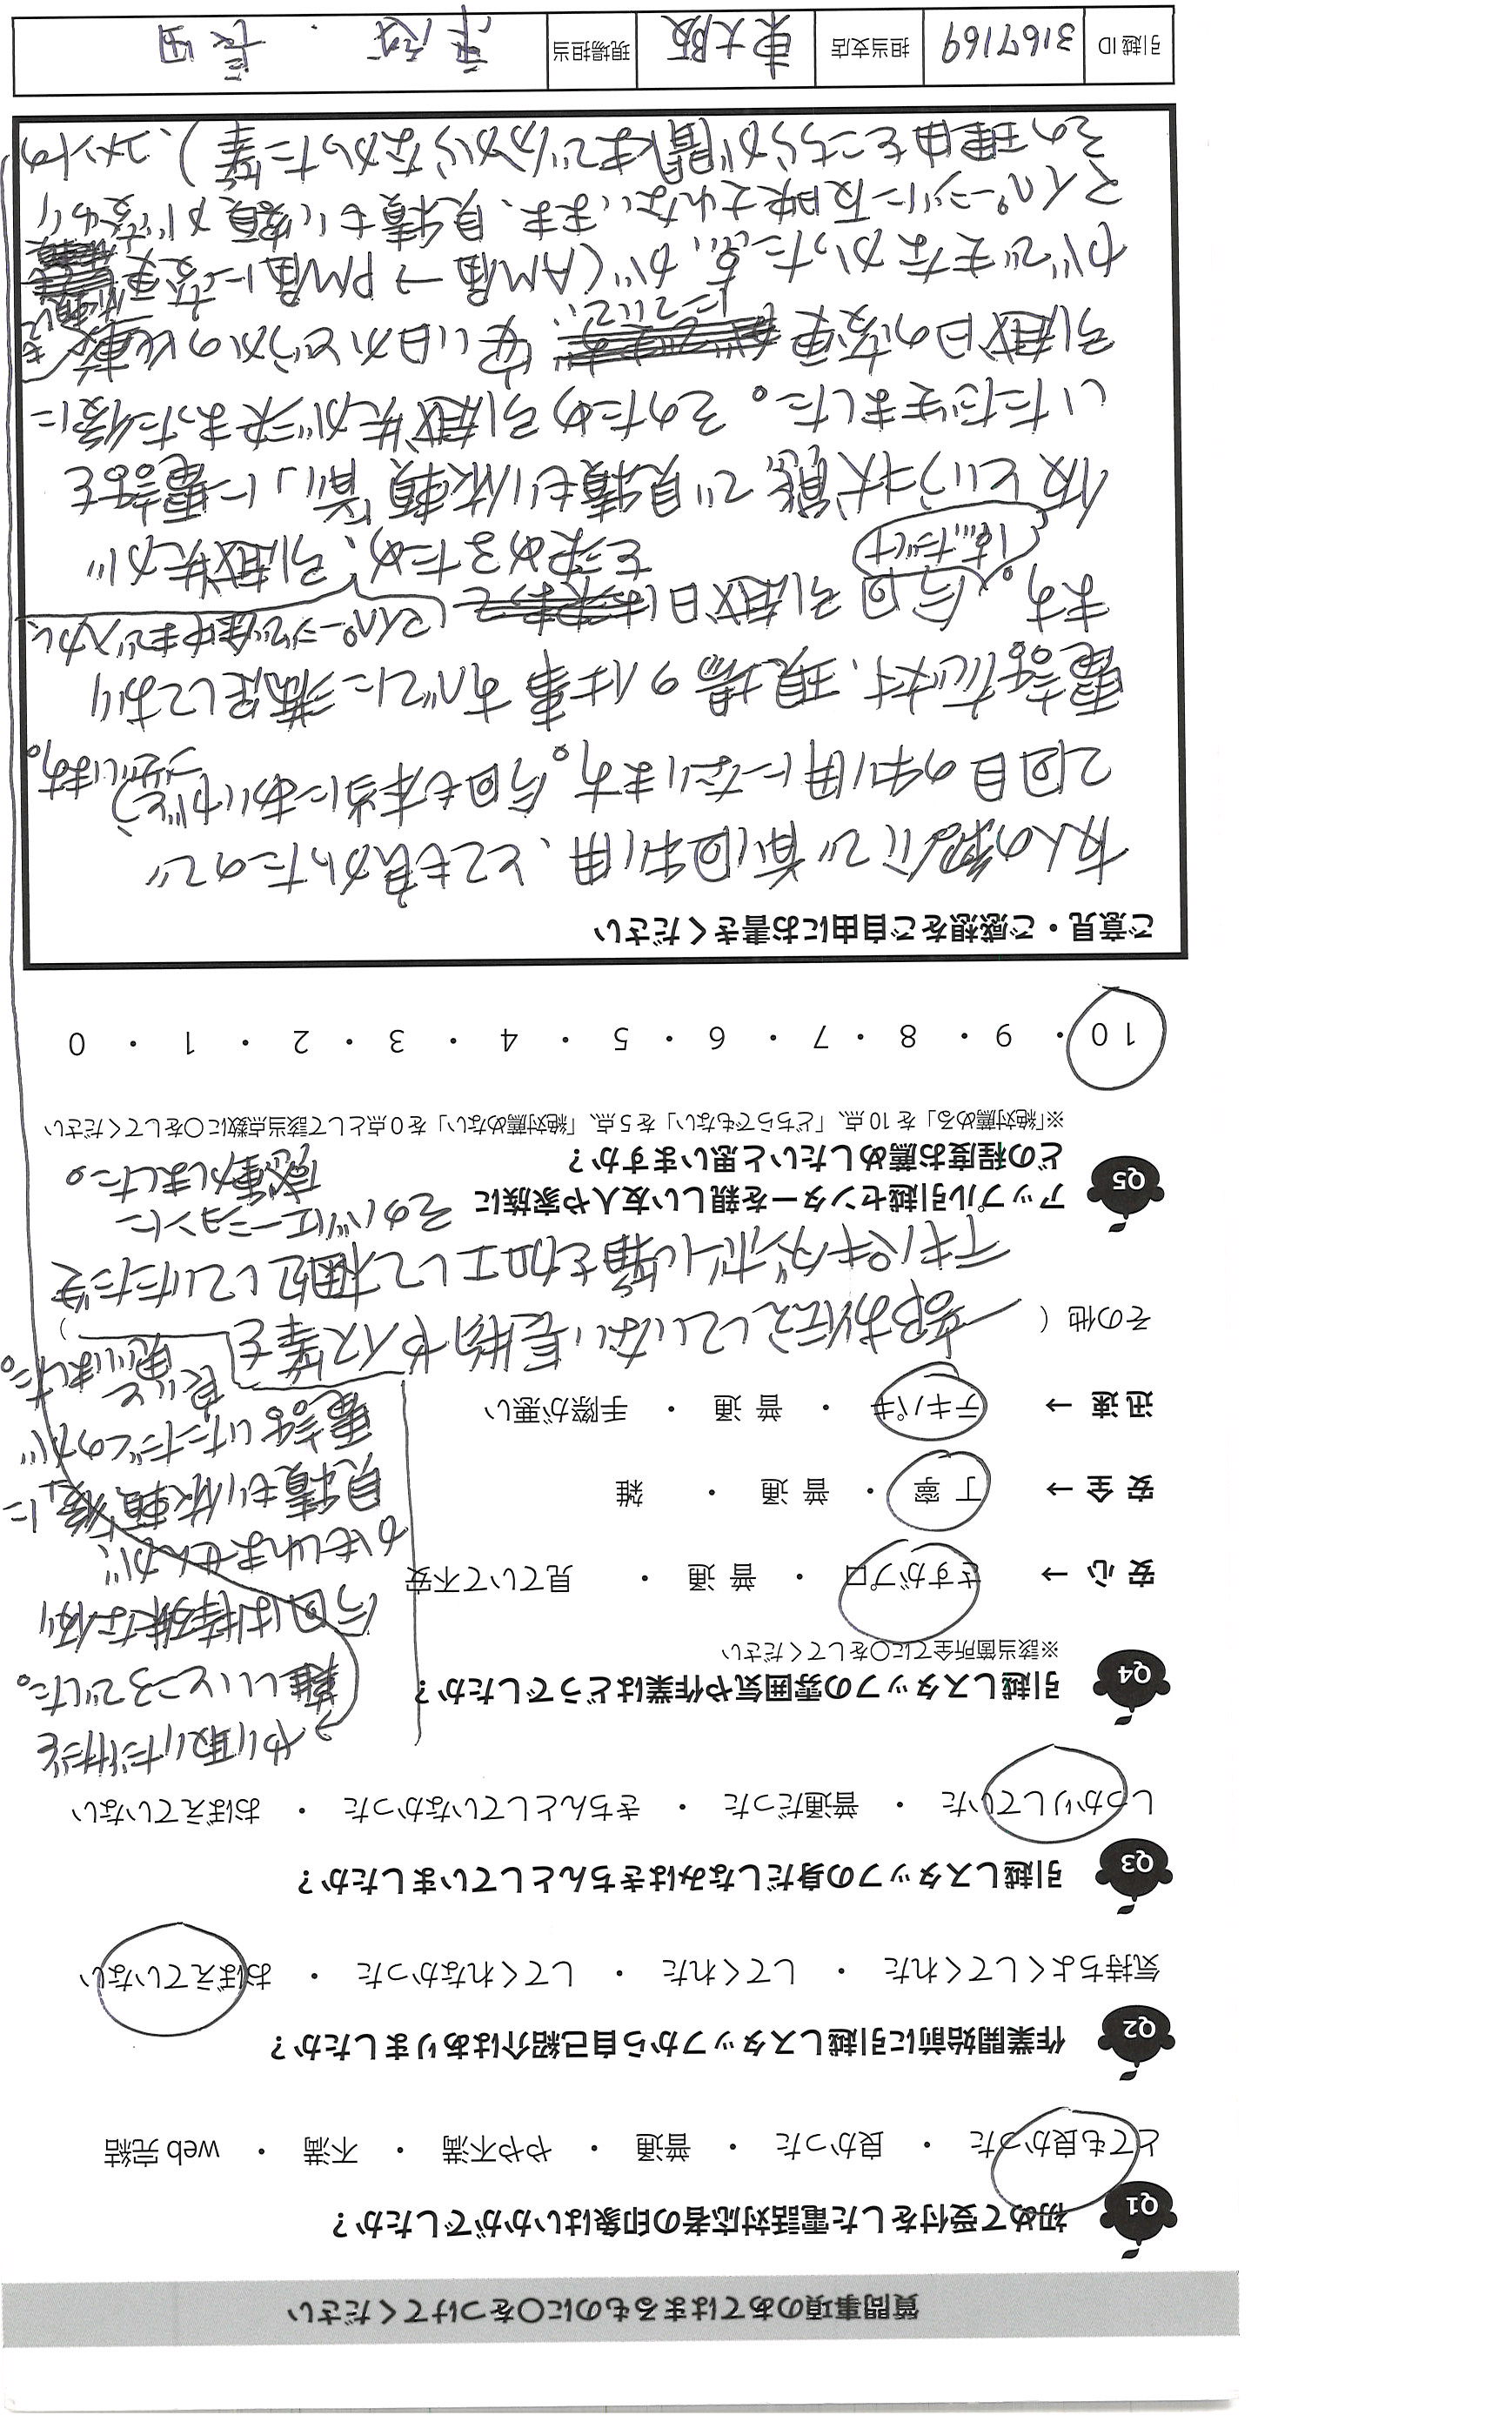 質問事項のあてはまるものに〇をつけてください
Q1 初めて受付をした電話対応者の印象はいかがでしたか？
とても良かった ・ 良かった ・ 普通 ・ やや不満 ・ 不満 ・ web 完結
Q2 作業開始前に引越しスタッフから自己紹介はありましたか？
気持ちよくしてくれた ・ してくれた ・ してくれなかった ・ おぼえていない
Q3 引越しスタッフの身だしなみはきちんとしていましたか？
しっかりしていた ・ 普通だった ・ きちんとしていなかった ・ おぼえていない
Q4 引越しスタッフの雰囲気や作業はどうでしたか？
※該当箇所全てに〇をしてください
安 心 → さすがプロ ・ 普 通 ・ 見ていて不安
安 全 → 丁 寧 ・ 普 通 ・ 雑
迅 速 → テキパキ ・ 普 通 ・ 手際が悪い
その他（ 一部お伝えしていない長物やイス等を ）
テキパキダンボール箱を加工して梱包していただき
そのバリエーションに
感動しました。
Q5 アップル引越センターを親しい友人や家族に
どの程度お薦めしたいと思いますか？
※「絶対薦める」を 10 点、「どちらでもない」を 5 点、「絶対薦めない」を 0 点として該当点数に〇をしてください
10 ・ 9 ・ 8 ・ 7 ・ 6 ・ 5 ・ 4 ・ 3 ・ 2 ・ 1 ・ 0
ご意見・ご感想をご自由にお書きください
友人の紹介で前回利用、とても良かったので
2回目の利用になります。今回も本当にありがとう
ございます。
電話応対、現場の仕事すべてに満足しており
ます。今回引越日は
マイページで途中まで入力し、
を決めるため、引越先が
まだ
仮という状態で見積もり依頼「前」に電話を
いただきました。そのため引越先が決まった後に
引越日の変更 について、安い日かどうかの比較を
ができなかった点、が(AM届→PM届に変更
マイページに反映されないまま、見積もり額が変わり
その理由をこちらが聞くまで分からなかった等）、コメントの
→やり取りだけだと
難しいところでした。
今回は特殊な例
かもしれませんが、
見積もり依頼「後」に
電話いただくのが
良いと
思いました。
引越 ID 3167169 担当支店 東大阪 現場担当